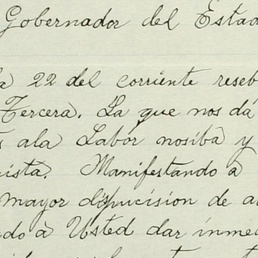 Gobernador del Estad
a 22 del corriente reseb
Tercera. La que nos dá
s ala Labor nosiba y
nista. Manifestando a
mayor dispucision de a
ndo à Usted dar inme